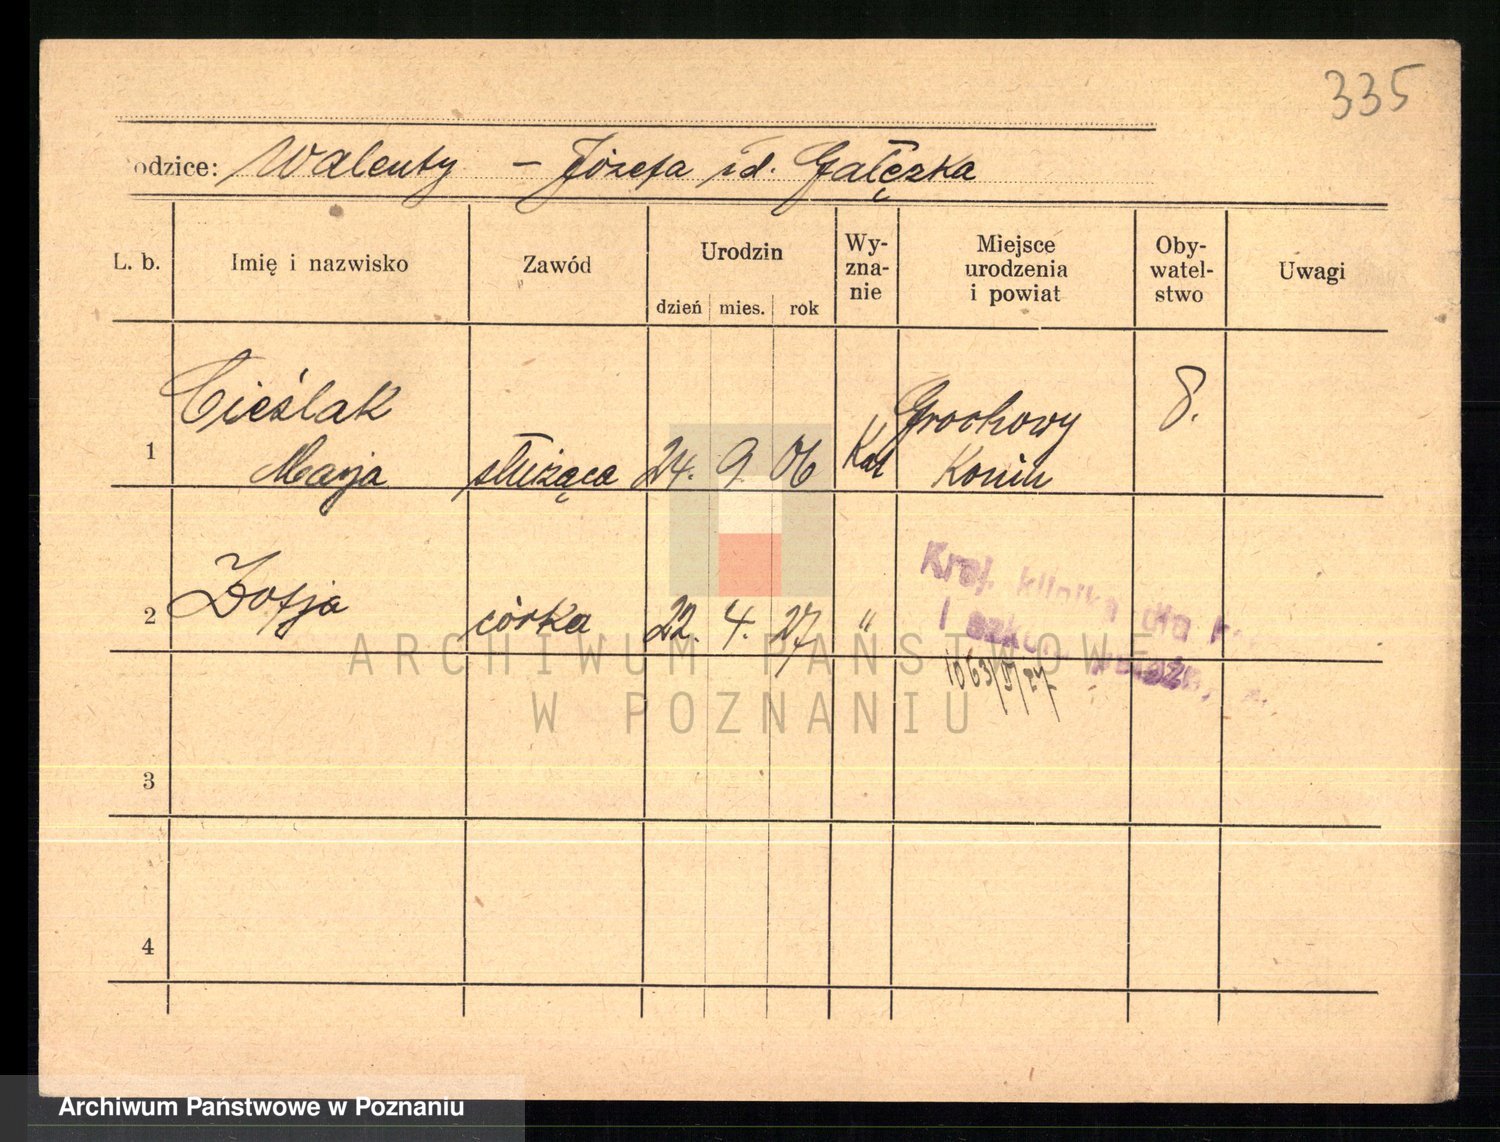 335
odzice: Walenty – Józefa id. Gałęzka
L. b. Imię i nazwisko Zawód Urodzin dzień mies. rok Wy-zna-nie Miejsce urodzenia i powiat Oby-watel-stwo Uwagi
Cieślak Grochowy
1 Marja służąca 24. 9. 06 Kat Konin
2 Zofja córka 22. 4. 27 "
Kraj. klinika dla
i szkoła
1063/V/27
3
4
ARCHIWUM PAŃSTWOWE
W POZNANIU
Archiwum Państwowe w Poznaniu